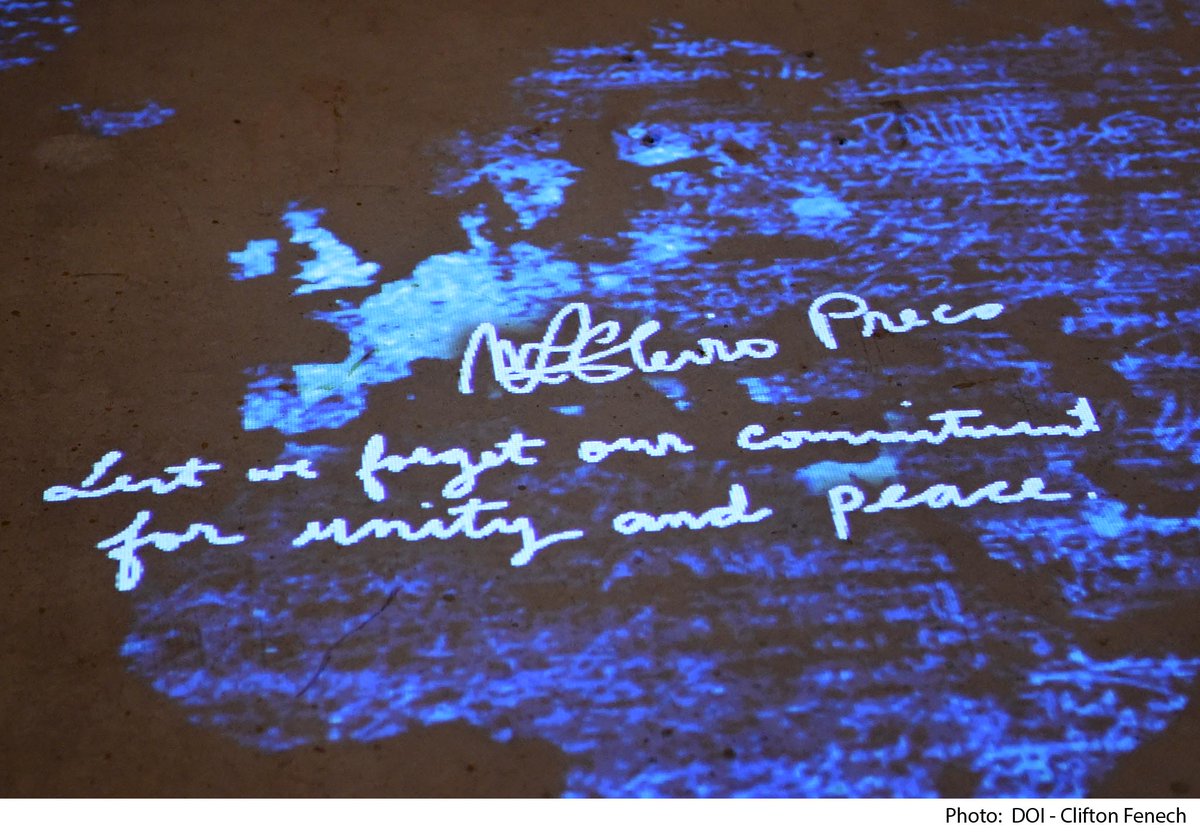 Preca
Lest we forget our commitment
for unity and peace.
Photo: DOI - Clifton Fenech